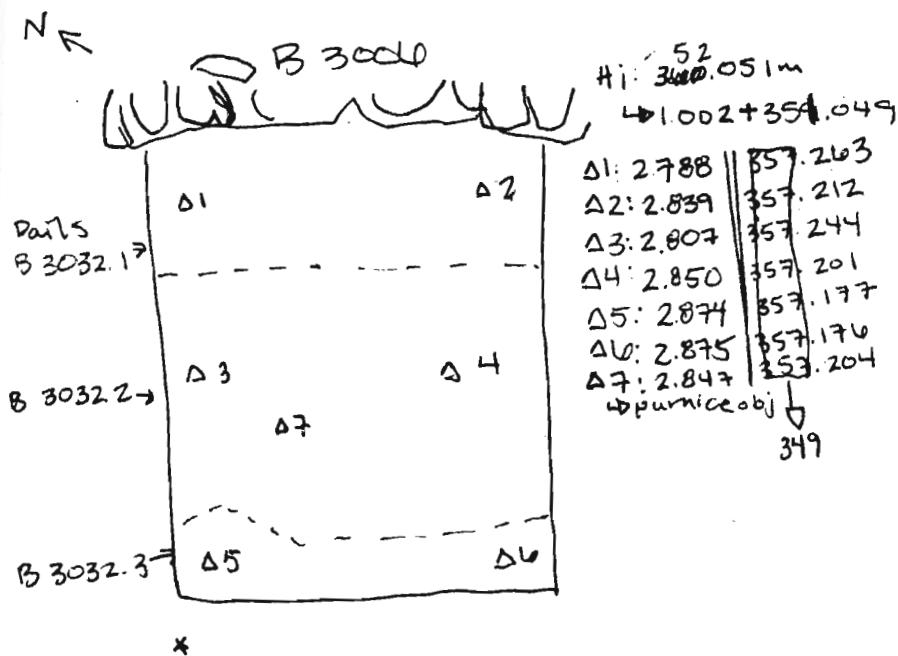 N
B 3006
52
Hi: .051m
↳1.002+351.049
Δ1: 2.788 357.263
Δ2: 2.839 357.212
Δ3: 2.807 357.244
Δ4: 2.850 357.201
Δ5: 2.874 357.177
Δ6: 2.875 357.176
Δ7: 2.847 357.204
↳pumice obj
349
Δ1
Δ2
Pails
B 3032.1
Δ3
Δ4
B 3032.2
Δ7
B 3032.3
Δ5
Δ6
*